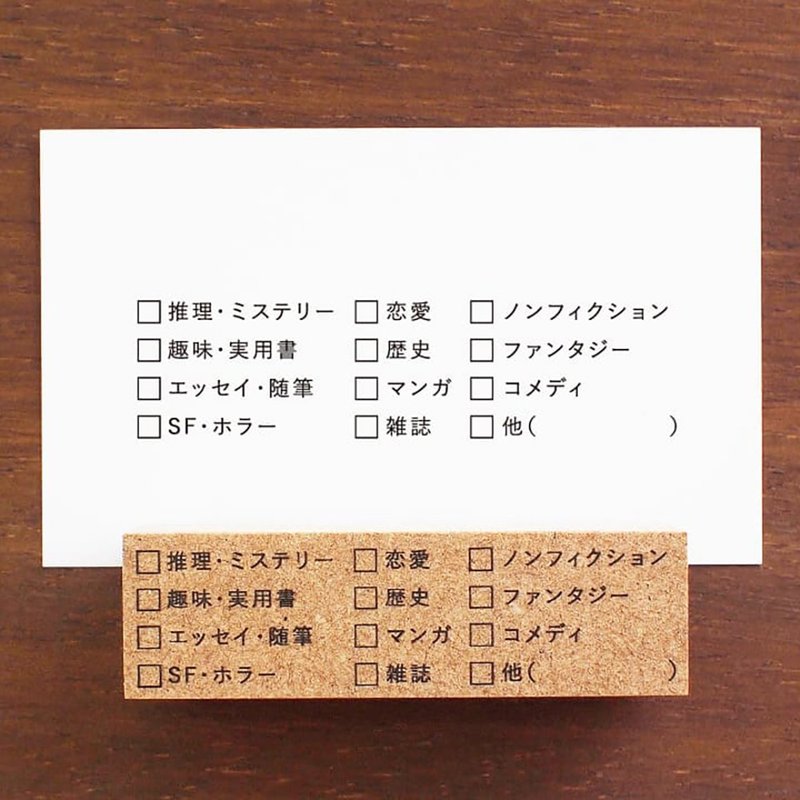 □推理・ミステリー □恋愛 □ノンフィクション
□趣味・実用書 □歴史 □ファンタジー
□エッセイ・随筆 □マンガ □コメディ
□SF・ホラー □雑誌 □他( )
□推理・ミステリー □恋愛 □ノンフィクション
□趣味・実用書 □歴史 □ファンタジー
□エッセイ・随筆 □マンガ □コメディ
□SF・ホラー □雑誌 □他( )